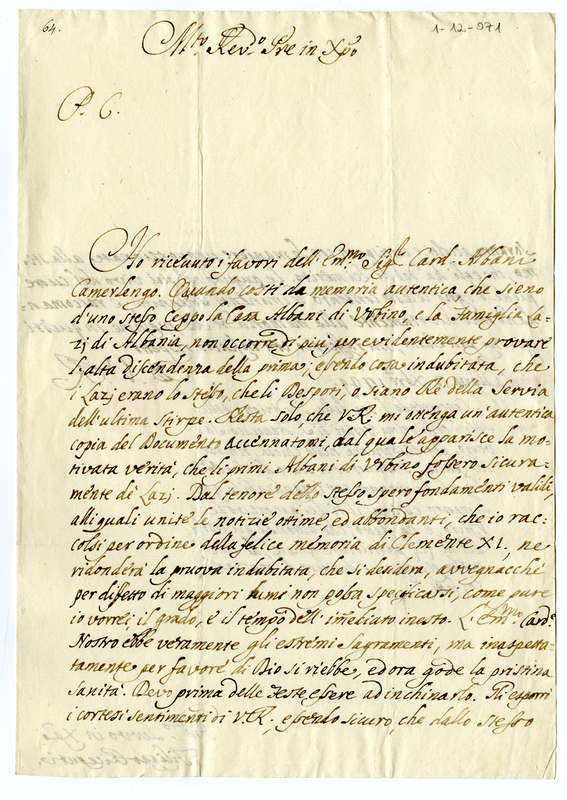 64.
1-12-071
M.to Rev.do Pre in Xpo
P. C.
Ho ricevuto i favori dell'Em.mo Sig.r Card. Albani
Camerlengo. Quando costi da memoria autentica, che sieno
d'uno stesso ceppo la Casa Albani di Urbino, e la Famiglia La-
zj di Albania, non occorre di più, per evidentemente provare
l'alta discendenza della prima; essendo cosa indubitata, che
i Lazj erano lo stesso, che li Despoti, o siano Rè della Servia
dell'ultima stirpe. Resta solo, che V.R. mi ottenga un'autentica
copia del Documento accennatomi, dal quale apparisce la mo-
tivata verità, che li primi Albani di Urbino fossero sicura-
mente de Lazj. Dal tenore dello stesso spero fondamenti validi,
alli quali unite le notizie ottime, ed abbondanti, che io rac-
colsi per ordine della felice memoria di Clemente XI., ne
risonderà la pruova indubitata, che si desidera, avvegnacchè
per difetto di maggiori lumi non possa specificarsi, come pure
io vorrei il grado, e il tempo dell'imediato inesto. L'Em.mo Card.e
Nostro ebbe veramente gli estremi Sagramenti, ma inaspetta-
tamente per favore di Dio si riebbe, ed ora gode la pristina
sanità. Devo prima delle Feste essere ad inchinarlo. Gli esporrò
i cortesi sentimenti di V.R., essendo sicuro, che dallo stesso